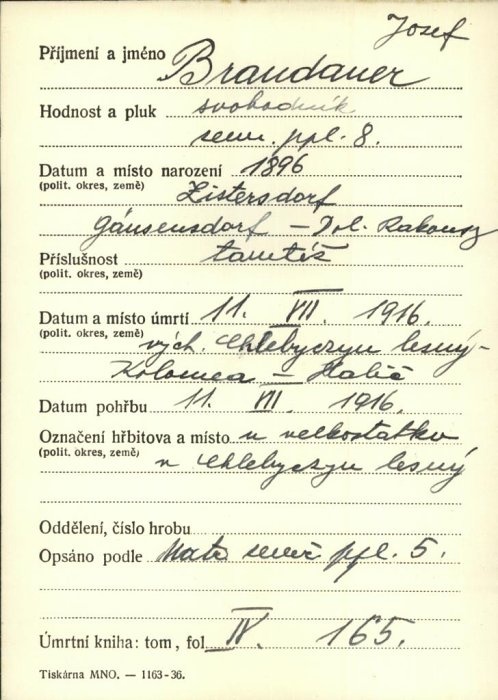 Josef
Příjmení a jméno Brandauer
Hodnost a pluk svobodník
zem. ppl. 8.
Datum a místo narození 1896
(polit. okres, země) Zistersdorf
Gänsensdorf - Dol. Rakousy
Příslušnost tamtéž
(polit. okres, země)
Datum a místo úmrtí 11. VII. 1916.
(polit. okres, země) vých. Chlebyczyn lesný-
Kolomea - Halič
Datum pohřbu 11. VII. 1916.
Označení hřbitova a místo u velkostatku
(polit. okres, země) v Chlebyczyn lesný
Oddělení, číslo hrobu
Opsáno podle Matr. zeměč ppl. 5.
Úmrtní kniha: tom, fol. IV. 165.
Tiskárna MNO. — 1163-36.